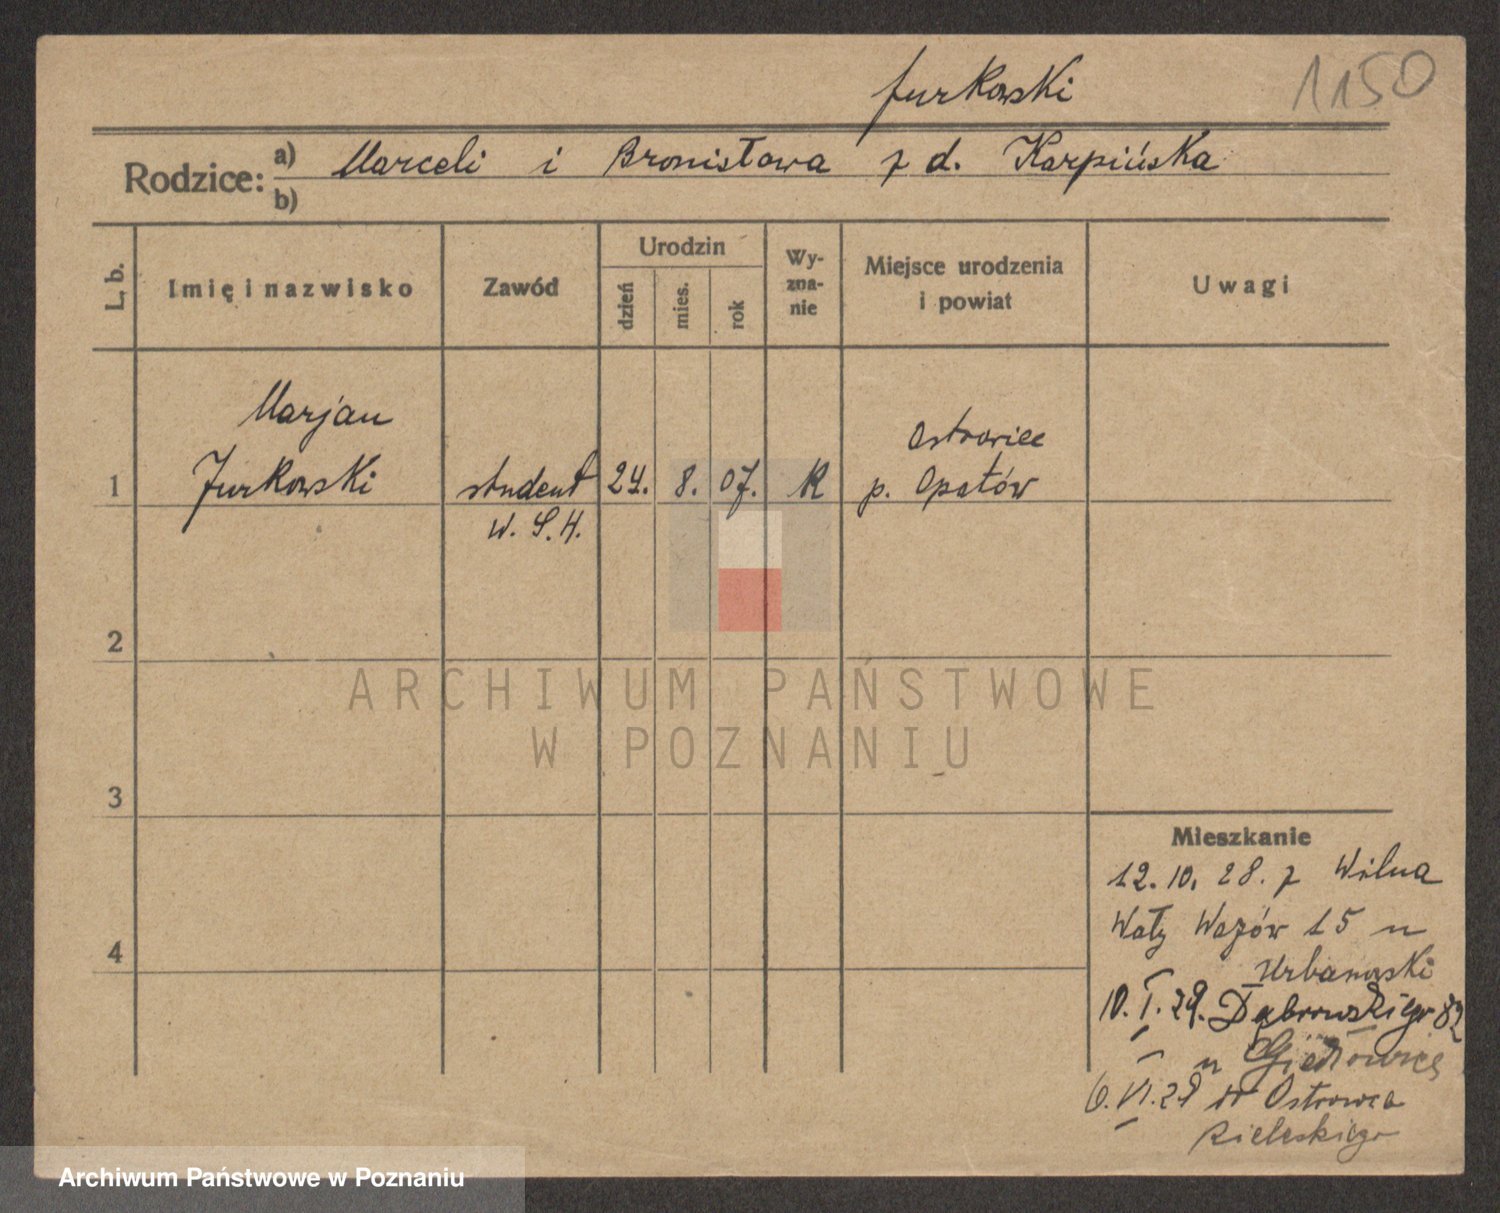 Jurkowski
1150
Rodzice: a) Marceli i Bronisława z d. Karpińska
b)
L. b.
Imię i nazwisko
Zawód
Urodzin
dzień
mies.
rok
Wy-
zna-
nie
Miejsce urodzenia
i powiat
Uwagi
Marjan
Ostrowiec
1 Jurkowski student 24. 8. 07. R p. Opatów
W. S. H.
2
ARCHIWUM PAŃSTWOWE
W POZNANIU
3
Mieszkanie
12. 10. 28. z Wilna
Wały Wazów 15 u
4
Urbanowski
10. I. 29. Dąbrowskiego 82
u
6. VI. 29 do Ostrowca
Kieleckiego
Archiwum Państwowe w Poznaniu